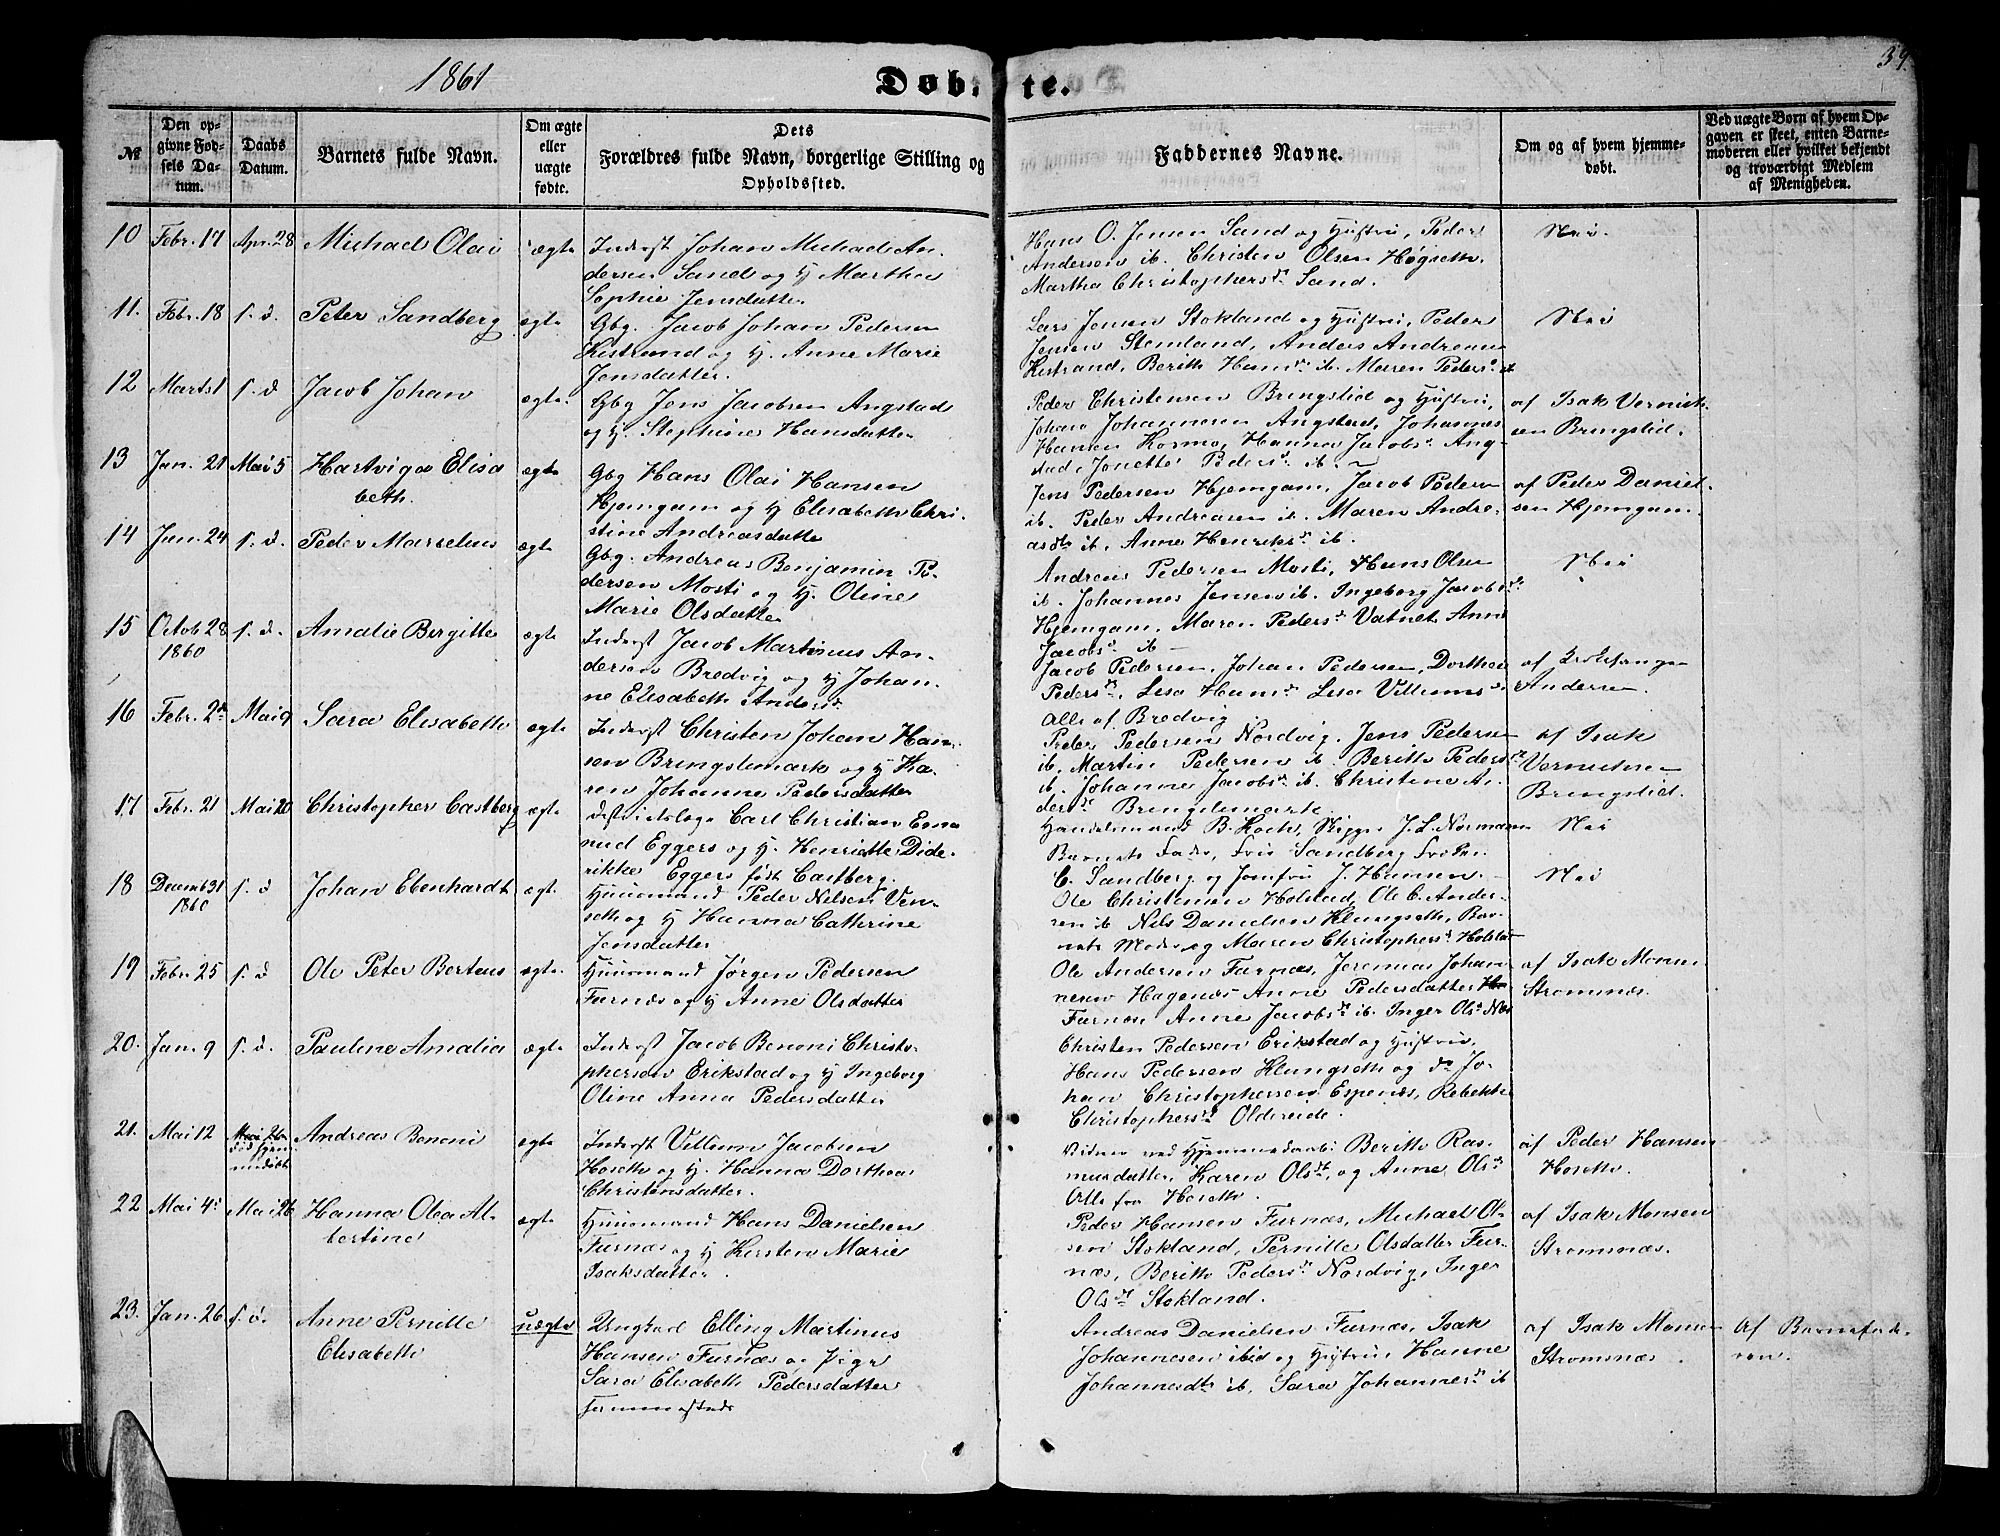 1861
Døbte.
39.
№
Den op-
givne Fød-
sels Da-
tum.
Daabs
Datum.
Barnets fulde Navn.
Om ægte
eller
uægte
fødte.
Dets
Forældres fulde Navn, borgerlige Stilling og
Opholdssted.
Faddernes Navne.
Om og af hvem hjemme-
døbt.
Ved uægte Børn af hvem Op-
gaven er skeet, enten Barne-
moderen eller hvilket bekjendt
og troværdigt Medlem
af Menigheden.
10 Febr. 17 Apr. 28 Michael Olai ægte
Inderst Johan Michael An-
dersen Sand og H Martha
Sophie Jensdatter
Hans O. Jensen Sand og Hustru, Peder
Andersen ib. Christen Olsen Høgseth,
Martha Christophersdr Sand.
Nei
11. Febr. 18 s. d. Peter Sandberg ægte
Gbg. Jacob Johan Pedersen
Kistrand og H. Anne Marie
Jensdatter.
Lars Jensen Stokland og Hustru, Peder
Jensen Stemland, Anders Andreasen
Kistrand, Berith Hansdr ib. Maren Pedersdr ib
Nei
12 Marts 1 s. d Jacob Johan ægte.
Gbg Jens Jacobsen Angstad
og H. Stephine Hansdatter
Peder Christensen Bringslid og Hustru,
Johan Johannesen Angstad, Johannes
Hansen Kosmo, Hanna Jacobsdr Ang-
stad, Jonette Pedersdr ib.
af Isak Vernits-
sen Bringslid.
13 Jan. 21 Mai 5 Hartviga Elisa
beth.
ægte
Gbg Hans Olai Hansen
Hjemgam og H Elisabeth Chri-
stine Andreasdatter
Jens Pedersen Hjemgam, Jacob Pedersen
ib. Peder Andreasen ib. Maren Andre-
asdtr ib, Anne Henriksdr ib.
af Peder Daniel-
sen Hjemgam.
14 Jan. 24 s. d. Peder Marselius ægte
Gbg. Andreas Benjamin Pe-
dersen Mosti og H. Oline
Marie Olsdatter
Andreas Pedersen Mosti, Hans Olsen
ib. Johannes Jensen ib. Ingeborg Jacobsdr
Hjemgam. Maren Pedersdr Vatnet. Anne
Jacobsdr ib
Nei
15 Octob 28
1860
s. d. Amalie Bergitte ægte
Inderst Jacob Martinus An-
dersen Bredvig og H Johan-
ne Elisabeth Andersdr
Jacob Pedersen, Johan Pedersen, Dorthea
Pedersdr, Lisa Hansdr Lisa Villumsdr
Alle af Bredvig
af
Andersen.
16 Febr. 2den Mai 9 Sara Elisabeth ægte
Inderst Christen Johan Han-
sen Bringslimark og H Ka-
ren Johanne Pedersdatter
Peder Pedersen Nordvig. Jens Pedersen
ib, Martin Pedersen ib Berith Pedersdr
ib. Johanne Jacobsdr ib. Christine An-
dersdr Bringslimark.
af Isak
Vernitsen
Bringslid.
17 Febr. 21 Mai 20 Christopher Castberg ægte
Distrietslæge Carl Christian Esma
nud Eggers og H. Henriette Dide-
rikke Eggers født Castberg.
Handelsmand B. Koch, Skipper J. L. Normann
Barnets Fader, Fru Sandberg Frøken
C. Sandberg og Jomfru J. Hansen.
Nei
18 Decemb 31
1860
s. d Johan Ebenhardt ægte.
Huusmand Peder Nilsen Ven-
seth og H Hanna Cathrine
Jensdatter
Ole Christensen Holstad, Ole C. Ander-
sen ib Nils Danielsen Klungseth, Bar-
nets Moder og Maren Christophersdr Holstad
Nei
19 Febr. 25 s. d Ole Peter Berteus ægte.
Huusmand Jørgen Pedersen
Furnæs og H Anne Olsdatter
Ole Andersen Furnæs, Jeremias Johan-
nesen Hagenæs Anne Pedersdatter
Furnæs Anne Jacobsdr ib. Inger Olsdr Næs
af Isak Monsen
Strømsnæs.
20. Jan. 9 s. d. Pauline Amalia ægte
Inderst Jacob Benoni Christo-
phersen Erikstad og H Ingeborg
Oline Anna Pedersdatter
Christen Pedersen Erikstad og Hustru,
Hans Pedersen Klungseth og do Jo-
han Christophersen Espenæs, Rebekka
Christophersdr Oldereide.
21. Mai 12 Mai 26
død hjem-
medøbt
Andreas Benoni ægte
Inderst Villum Jacobsen
Hoseth og H. Hanna Dorthea
Christensdatter.
Vidner ved Hjemmedaab: Berith Ras-
musdatter, Karen Olsdr, og Anne Olsdr
Alle fra Hoseth.
af Peder Hansen
Hoseth.
22 Mai 4de Mai 26 Hanna Olea Al-
bertine
ægte
Huusmand Hans Danielsen
Furnæs og H Kirsten Marie
Isaksdatter.
Peder Hansen Furnæs, Michael Ol-
sen Stokland, Pernille Olsdatter Fur-
næs, Berith Pedersdr Nordvig, Inger
Olsdr Stokland.
af Isak Monsen
Strømsnæs.
23. Jan. 26 s. d. Anne Pernille
Elisabeth
uægte
Ungkarl Elling Martinus
Hansen Furnæs og Pige
Sara Elisabeth Pedersdatter
sammesteds
Andreas Danielsen Furnæs, Isak
Johannesen ibid og Hustru Hanne
Johannesdtr ib, Sara Johannesdr ib
af Isak Monsen
Strømsnæs.
Af Barnefade-
ren.